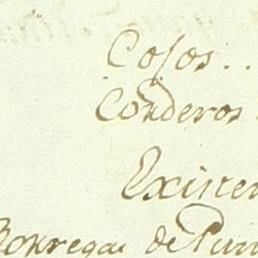 Cojos..
Corderos
Existen
Borregas de Pun